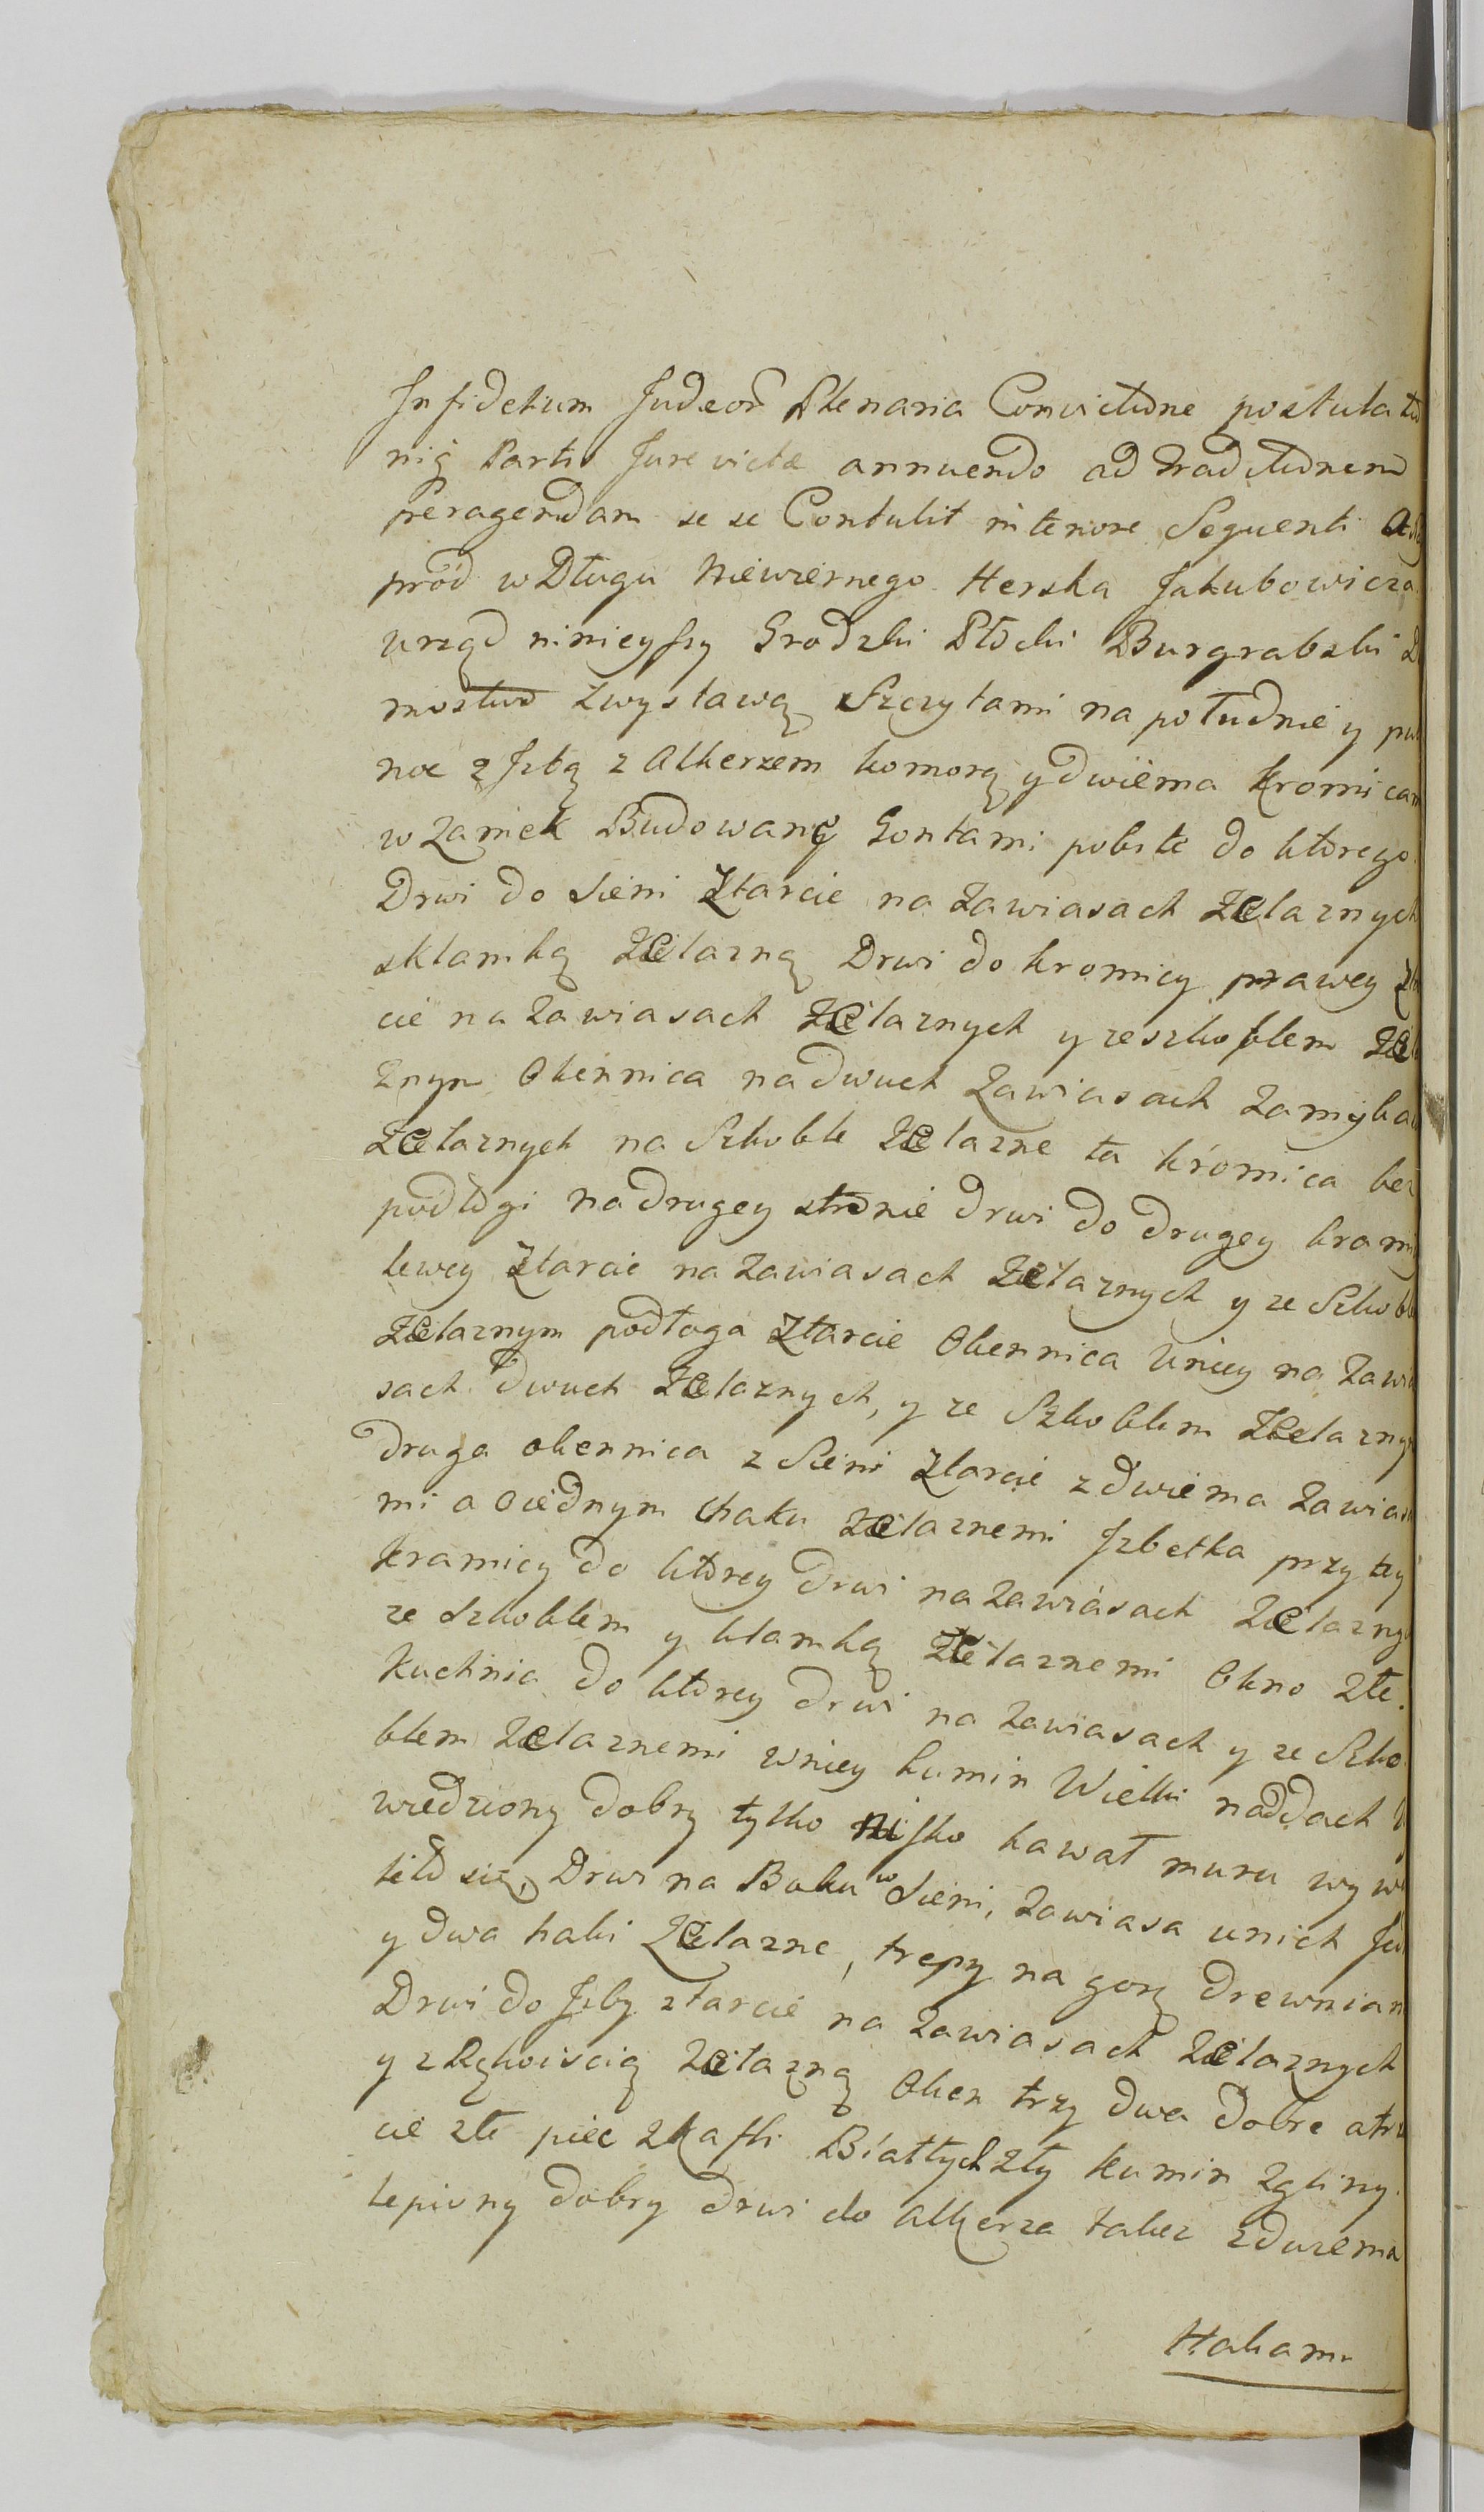 Infidelium Judeor Plenaria Convictione postulatio
nig Partis Jure victæ annuendo ad Traditionem
peragendam se se Contulit in tenore Sequenti
pród w Długu Niewiernego Herska Jakubowicza
urząd ninieyszy Grodzki Płocki Burgrabski
mostwo zwystawą Szczytami na południe y puł
noc z Jzbą z Alkerzem komorą y dwiema kromicam
w Zamek Budowane Gontami pobite do ktorego
Drwi do Sieni Ztarcie na Zawiasach Zelaznych
sklamką Zelazną Drwi do kromicy prawey Ztar
cie na Zawiasach Zelaznych y ze szkoblem Zela
znym Okennica na dwuch Zawiasach Zamyka
Zelaznych na Szkoble Zelazne ta kromica bez
podłogi na drugey stronie drwi do drugey krami
lewey Ztarcie na Zawiasach Zelaznych y ze Szkoble
Zelaznym podłoga Ztarcie Okennica Uniey na Zawia
sach dwuch Zelaznych, y ze Szkoblem Zelaznym
druga okennica z Sieni Ztarcie z dwiema Zawiasa
mi a oiednym haku Zelaznemi Jzbetka przy tey
kramicy do ktorey drwi na Zawiasach Zelaznych
ze Szkoblem y klamką Zelaznemi Okno złe.
Kuchnia do ktorey drwi na Zawiasach y ze Szko
blem Zelaznemi w niey kumin Wielki nad dach
wiedziony dobry tylko nisko kawał muru wywa
liło się, Drwi na Boku w Sieni, Zawiasa unich
y dwa haki Zelazne, trepy na gorę drewnian
Drwi do Jzby ztarcie na Zawiasach Zelaznych
y z Rękoiscią Zelazną Okien trzy dwa dobre a trze
cie złe piec z kafli Białłych zły kumin z gliny
lepiony dobry drwi do alkierza takez z dwiema
Hakam.